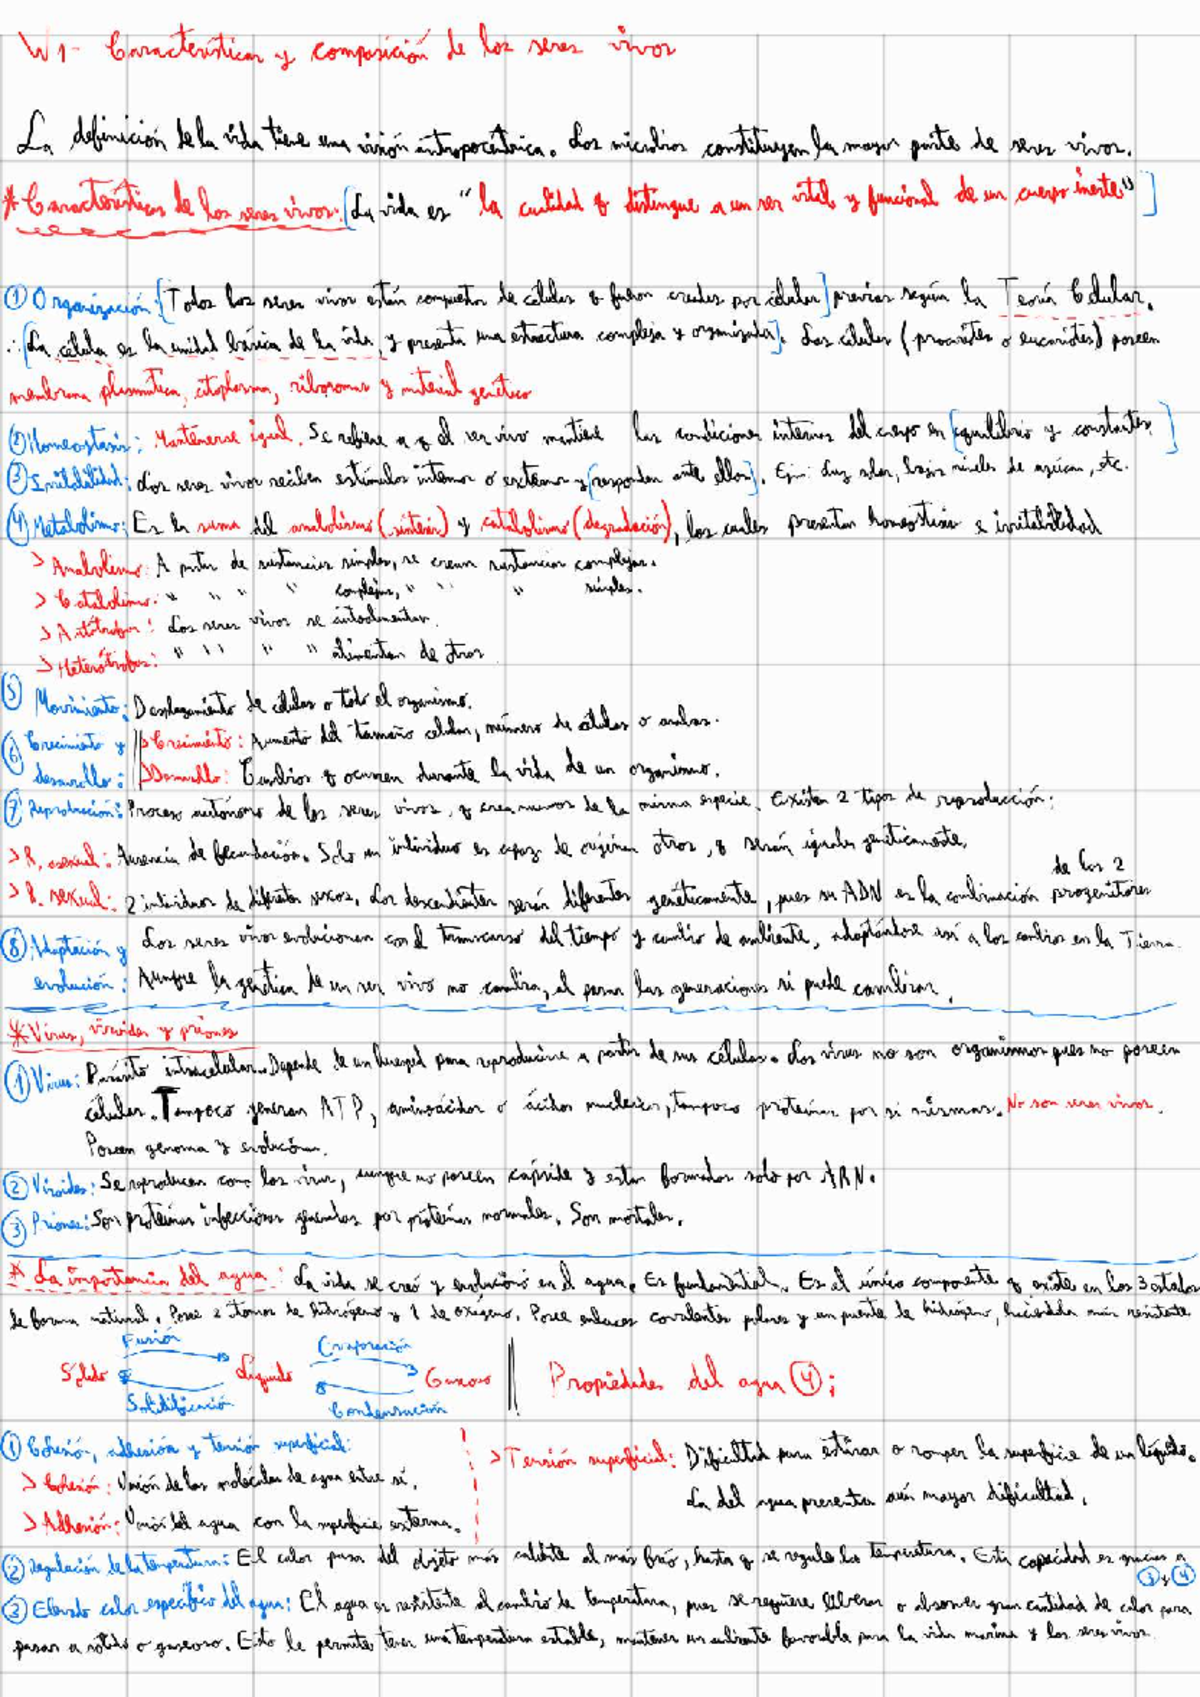 W1- Características y composición de los seres vivos
La definición de la vida tiene una visión antropocéntrica. Los microbios constituyen la mayor parte de seres vivos.
*Características de los seres vivos: [La vida es "la cualidad q distingue a un ser vital y funcional de un cuerpo inerte"]
① Organización: [Todos los seres vivos están compuestos de células q fueron creadas por células] previas según la Teoría Celular.
∴ [La célula es la unidad básica de la vida, y presenta una estructura compleja y organizada]. Las células (procariotas o eucariotas) poseen
membrana plasmática, citoplasma, ribosomas y material genético
② Homeostasis: Mantenerse igual. Se refiere a q el ser vivo mantiene las condiciones internas del cuerpo en [equilibrio y constantes.]
③ Irritabilidad: Los seres vivos reciben estímulos internos o externos y [responden ante ellos]. Ej: Luz solar, bajos niveles de azúcar, etc.
④ Metabolismo: Es la suma del anabolismo (síntesis) y catabolismo (degradación), los cuales presentan homeostasis e irritabilidad
> Anabolismo: A partir de sustancias simples, se crean sustancias complejas.
> Catabolismo: " " " " complejas, " " " simples.
> Autótrofos: Los seres vivos se autoalimentan.
> Heterótrofos: " " " " alimentan de otros
⑤ Movimiento: Desplazamiento de células o todo el organismo.
⑥ Crecimiento y > Crecimiento: Aumento del tamaño celular, número de células o ambas.
desarrollo: > Desarrollo: Cambios q ocurren durante la vida de un organismo.
⑦ Reproducción: Proceso autónomo de los seres vivos, q crea nuevos de la misma especie. Existen 2 tipos de reproducción:
> R. asexual: Ausencia de fecundación. Solo un individuo es capaz de originar otros, q serán iguales genéticamente.
> R. sexual: 2 individuos de diferentes sexos. Los descendientes serán diferentes genéticamente, pues su ADN es la combinación de los 2 progenitores
⑧ Adaptación y Los seres vivos evolucionan con el transcurso del tiempo y cambio de ambiente, adaptándose así a los cambios en la Tierra.
evolución: Aunque la genética de un ser vivo no cambia, al pasar las generaciones sí puede cambiar.
*Virus, viroides y priones
① Virus: Parásito intracelular. Depende de un huésped para reproducirse a partir de sus células. Los virus no son organismos pues no poseen
células. Tampoco generan ATP, aminoácidos o ácidos nucleicos, tampoco proteínas por sí mismas. No son seres vivos.
Poseen genoma y evolucionan.
② Viroides: Se reproducen como los virus, aunque no poseen cápside y están formados solo por ARN.
③ Priones: Son proteínas infecciosas generadas por proteínas normales. Son mortales.
* La importancia del agua: La vida se creó y evolucionó en el agua. Es fundamental. Es el único componente q existe en los 3 estados
de forma natural. Posee 2 átomos de hidrógeno y 1 de oxígeno. Posee enlaces covalentes polares y un puente de hidrógeno, haciéndola más resistente
Fusión Evaporación
Sólido Líquido Gaseoso Propiedades del agua (4):
Solidificación Condensación
① Cohesión, adhesión y tensión superficial:
> Cohesión: Unión de las moléculas de agua entre sí.
> Adhesión: Unión del agua con la superficie externa.
> Tensión superficial: Dificultad para estirar o romper la superficie de un líquido.
La del agua presenta aún mayor dificultad.
② Regulación de la temperatura: El calor pasa del objeto más caliente al más frío, hasta q se regula la temperatura. Esta capacidad es gracias a
③ y ④
③ Elevado calor específico del agua: El agua es resistente al cambio de temperatura, pues se requiere liberar o absorver gran cantidad de calor para
pasar a sólido o gaseoso. Esto le permite tener una temperatura estable, mantener un ambiente favorable para la vida marina y los seres vivos.